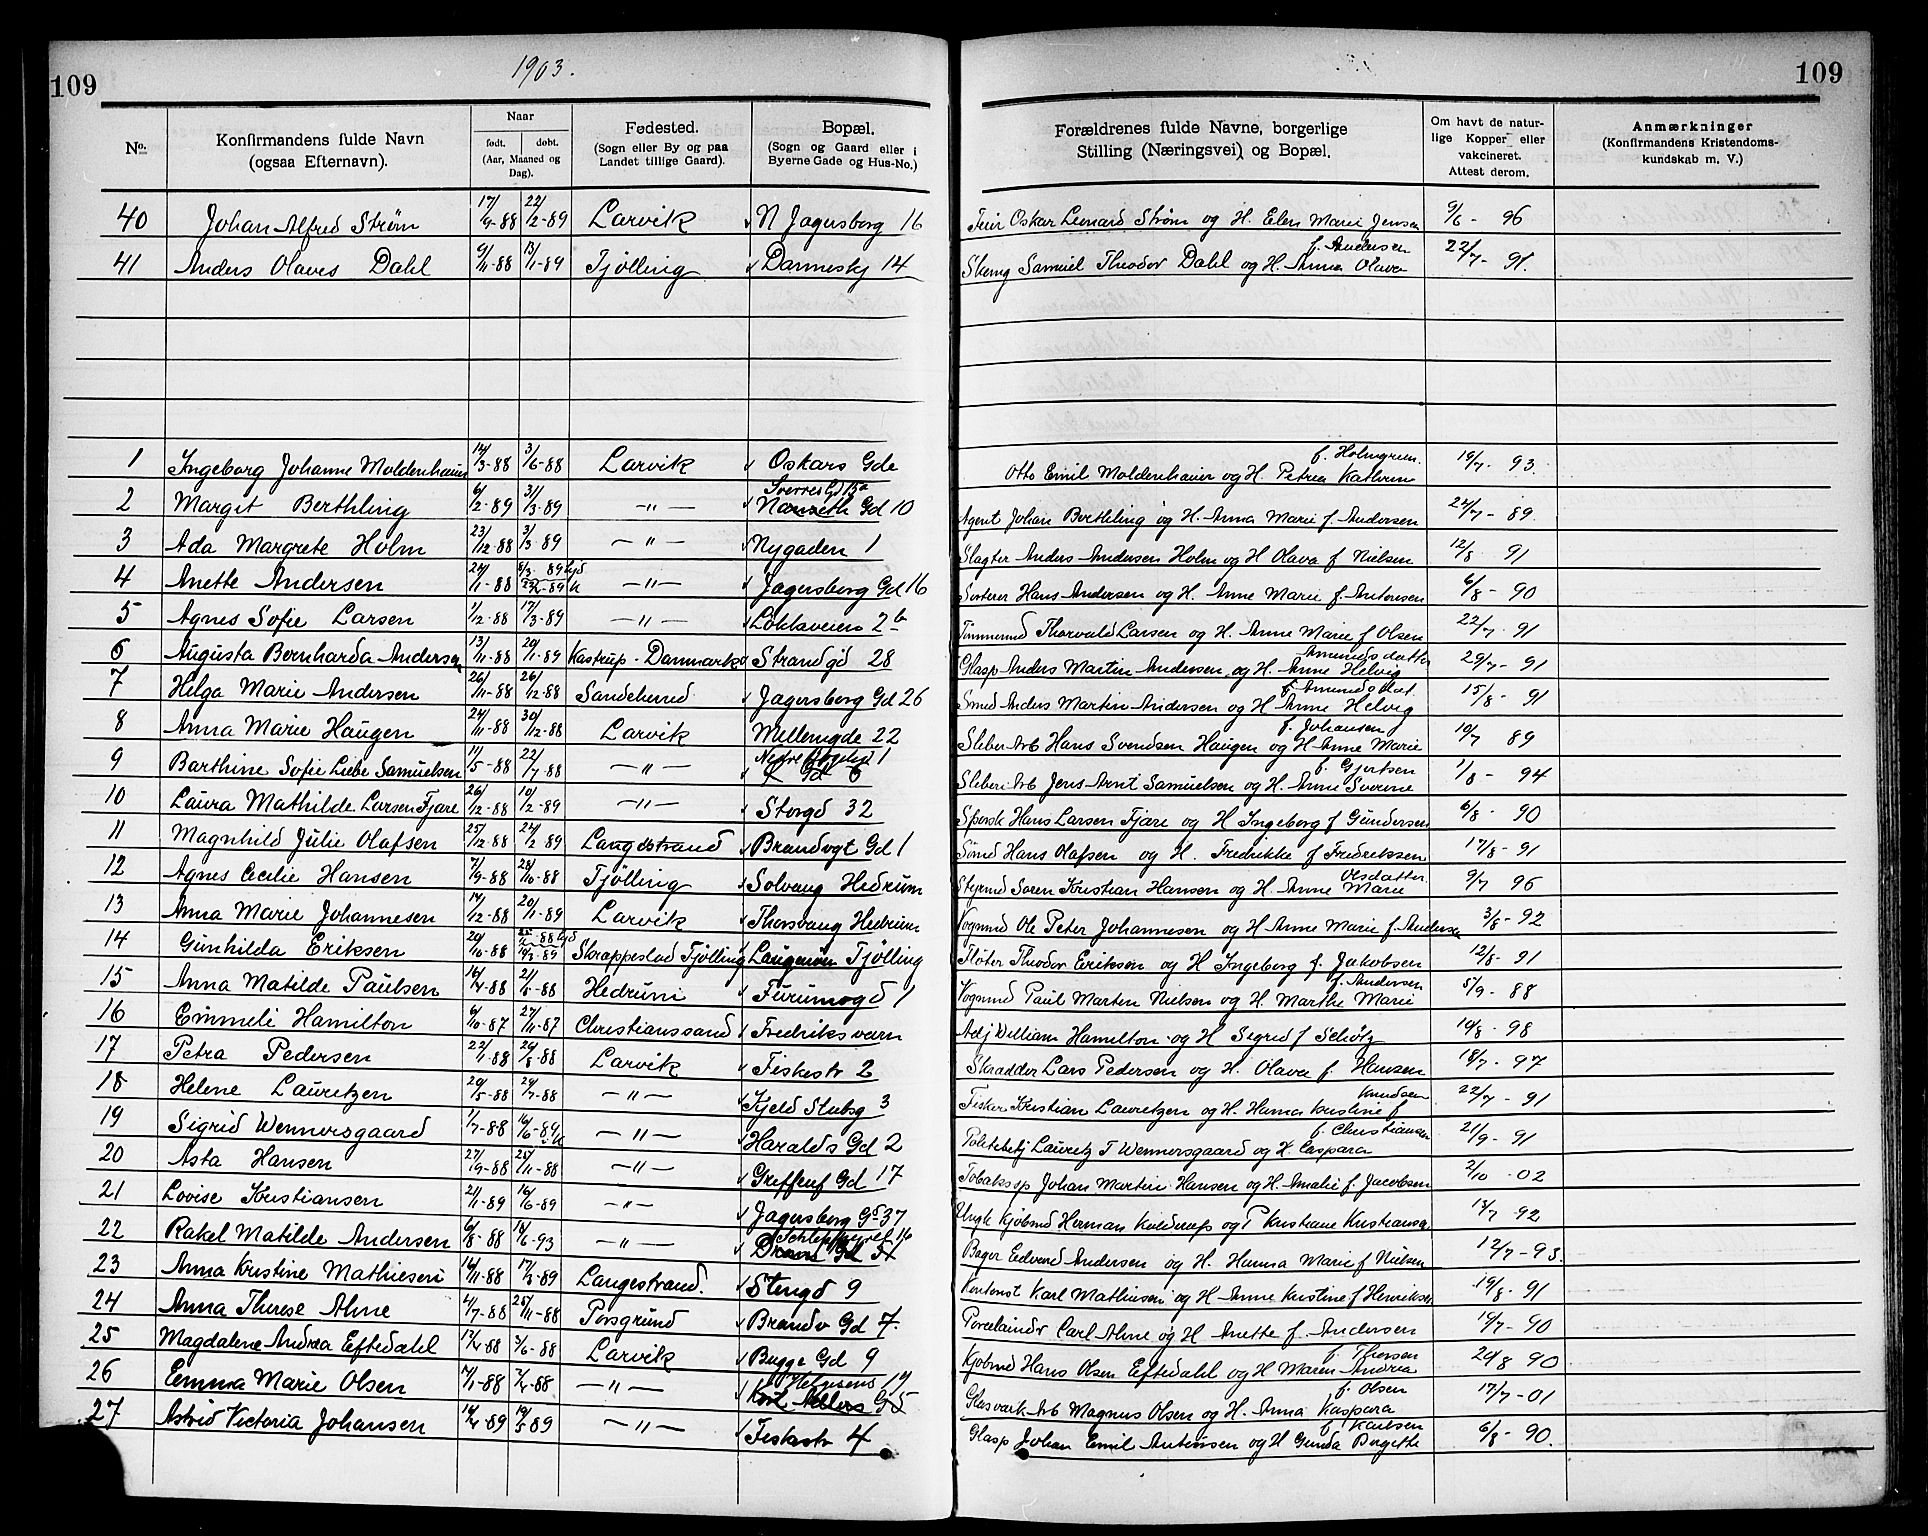 1903.
109
109
No.
Konfirmandens fulde Navn
(ogsaa Efternavn).
Naar
født. døbt.
(Aar, Maaned og
Dag).
Fødested.
(Sogn eller By og paa
Landet tillige Gaard).
Bopæl.
(Sogn og Gaard eller i
Byerne Gade og Hus-No.)
Forældrenes fulde Navne, borgerlige
Stilling (Næringsvei) og Bopæl.
Om havt de natur-
lige Kopper eller
vakcineret.
Attest derom.
Anmærkninger
(Konfirmandens Kristendoms-
kundskab m. V.)
40 Johan Alfred Strøm 17/9-88 22/2-89 Larvik N Jagersborg 16 Feier Oskar Leonard Strøm og H. Elen Marie Jensen 9/6-96
f. Andersen
41 Anders Olaves Dahl 9/11-88 13/1-89 Tjølling Danneskj 14 Skomg Samuel Theodor Dahl og H. Anna Olava 22/7-91.
f. Holmgren.
1 Ingeborg Johanne Moldenhauer 14/3-88 3/6-88 Larvik Oskars Gde Otto Emil Moldenhauer og H. Petrea Kathrine 19/7-93.
Sverres Gd 15a
2 Margit Berthling 6/2-89 31/3-89 -"- Nanseth Gd 10 Agent Johan Berthling og H. Anna Marie f. Andersen 24/7-89.
3 Ada Margrete Holm 23/12-88 3/3-89 -"- Nygaden 1 Slagter Anders Andersen Holm og H Olava f Nielsen 12/8-91
4 Anette Andersen 24/11-88 -"- Jagersborg Gd 16 Sorterer Hans Andersen og H. Anne Marie f. Antonsen 6/8-90
5 Agnes Sofie Larsen 1/12-88 17/3-89 -"- Løkkeveien 2b Tømmermd Thorvald Larsen og H. Anne Marie f Olsen 22/7-91
Amundsdatter
6 Augusta Bernharda Andersen 13/11-88 20/1-89 Kastrup-Danmark Strandgd 28 Glasp Anders Martin Andersen og H. Anne Helvig 29/7-91
f. Amundsdat.
7 Helga Marie Andersen 26/11-88 26/12-88 Sandeherred Jagersborg Gd 26 Smed Anders Martin Andersen og H Anne Helvig 15/8-91
f. Johansen
8 Anna Marie Haugen 24/11-88 30/12-88 Larvik Mellemgde 22 Sliber Arb Hans Svendsen Haugen og H Anne Marie 19/7 89
f. Gjertsen
9 Barthine Sofie Liebe Samuelsen 11/5-88 22/7-88 -"- Sliberi Arb Jens Arnt Samuelsen og H. Anne Severine 1/8-94
10 Laura Mathilde Larsen Fjære 26/12-88 10/2-89 -"- Storgd 32 Spersk Hans Larsen Fjære og H Ingeborg f Gundersen 6/8-90
11 Magnhild Julie Olafsen 25/12-88 24/2 89 Langestrand Brandvgt Gd 1 Smed Hans Olafsen og H. Fredrikke f Fredriksen 17/8-91
Olsdatter
12 Agnes Cecilie Hansen 7/9-88 28/10-88 Tjølling Solvang Hedrum Styrmd Søren Kristian Hansen og H. Anne Marie 9/7 96
13 Anna Marie Johannesen 14/12-88 20/1-89 Larvik Thorsvang Hedrum Vognmd Ole Peter Johannesen og H Anne Marie f. Andersen 3/8-92
14 Gunhilda Eriksen 20/10-88 Skrappeslad Tjølling Laugenøen Tjølling Fløter Theodor Eriksen og H Ingeborg f. Jakobsen 12/8-91
f. Andersen
15 Anna Matilde Paulsen 16/4-88 21/5-88 Hedrum Furumogd 1 Vognmd Paul Martin Nielsen og H. Marthe Marie 5/9-88
16 Emmeli Hamilton 6/10-87 27/11-87 Christianssand Fredriksværn Adj William Hamilton og H Sigrid f Schøtz 19/8-98
17 Petra Pedersen 22/1-88 24/8-88 Larvik Fiskestr 2 Skrædder Lars Pedersen og H. Olava f. Hansen 18/7-97
Knudsen
18 Helene Lauritzen 20/5-88 24/7-88 -"- Kjeld Stubsg 3 Fisker Kristian Lauritzen og H. Hanna Kristine f 22/7-91
f. Christiansen
19 Sigrid Wennersgaard 1/7-88 16/6-89 -"- Haralds Gd 2 Politebetj Lauritz T Wennersgaard og H. Caspara 21/9-91
20 Asta Hansen 27/9-88 25/11-88 -"- Greffenf Gd 17 Tobakssp Johan Martin Hansen og H. Amalie f. Jacobsen 2/10-02
21 Lovise Kristiansen 21/1-89 16/6-89 -"- Jagersborg Gd 37 Ungk Kjøbmd Herman Kolderup og P Kristiane Kristiansen 14/7 92
22 Rakel Matilde Andersen 6/8-88 18/6-93 -"- Bager Edvard Andersen og H. Hanna Marie f Nielsen 12/7-93.
23 Anna Kristine Mathiesen 16/11-88 17/3-89 Langestrand. Stengd 9 Kontorist Karl Mathiesen og H Anne Kristine f Henriksen 19/8-91
24 Anna Therese Alme 4/7-88 25/11-88 Porsgrund Brandv Gd 7. Porcelaindr Carl Alme og H Anette f. Andersen 19/7-90
f. Thorsen
25 Magdalene Andrea Eftedahl 17/4-88 3/6-88 Larvik Bugge Gd 9 Kjøbmd Hans Olsen Eftedahl og H Maren Andrea 20/8 90
f. Olsen
26 Emma Marie Olsen 7/1-88 2/4-88 -"- Glasværk Arb Magnus Olsen og H. Anna Kaspara 17/7-01
f. Karlsen
27 Astrid Victoria Johansen 16/4-89 19/5 89 -"- Fiskestr 4 Glasp Johan Emil Antonsen og H Gunda Birgitte 6/8-90.